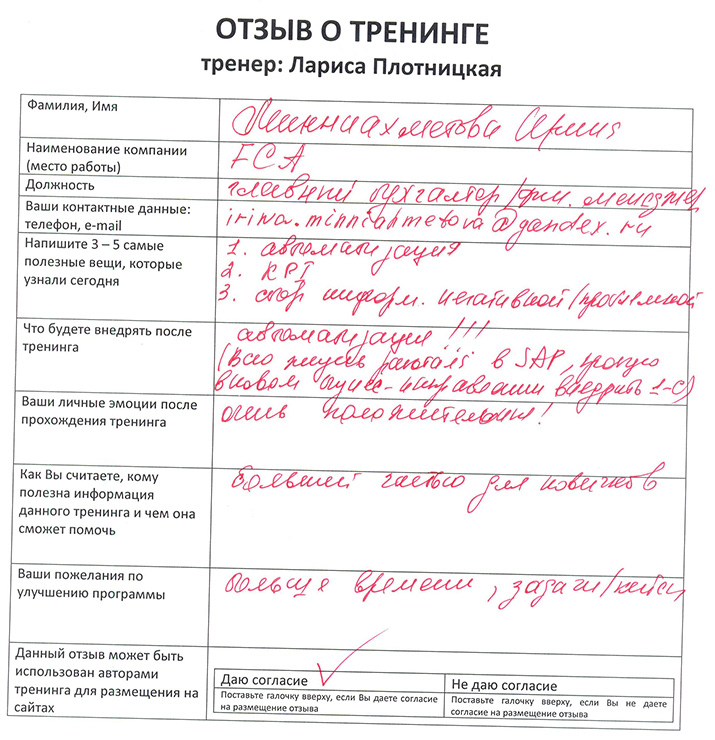 ОТЗЫВ О ТРЕНИНГЕ
тренер: Лариса Плотницкая
Фамилия, Имя
Минниахметова Ирина
Наименование компании
(место работы)
FCA
Должность
главный бухгалтер/фин. менеджер
Ваши контактные данные:
телефон, e-mail
irina.minniahmetova@yandex.ru
Напишите 3 – 5 самые
полезные вещи, которые
узнали сегодня
1. автоматизация
2. KPI
3. сбор информ. негативной/проблемной
Что будете внедрять после
тренинга
автоматизация!!!
(Всю жизнь работаю в SAP,
в новом внедрить 1-С)
Ваши личные эмоции после
прохождения тренинга
очень положительные!
Как Вы считаете, кому
полезна информация
данного тренинга и чем она
сможет помочь
большей частью для новичков
Ваши пожелания по
улучшению программы
больше времени, задачи/кейсы
Данный отзыв может быть
использован авторами
тренинга для размещения на
сайтах
Даю согласие
Поставьте галочку вверху, если Вы даете согласие
на размещение отзыва
Не даю согласие
Поставьте галочку вверху, если Вы не даете
согласие на размещение отзыва